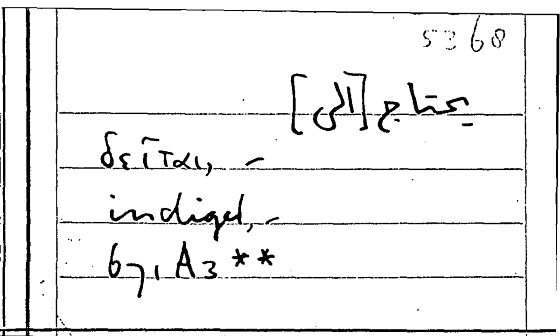 5368
يحتاج [الى]
δεῖται, -
indiget, -
671 A3 **